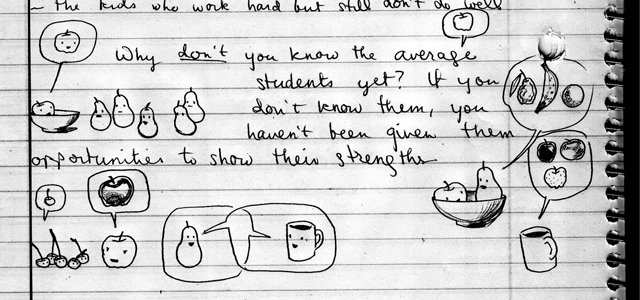 - The kids who work hard but still don't do well
Why don't you know the average
students yet? If you
don't know them, you
haven't been given them
opportunities to show their strengths